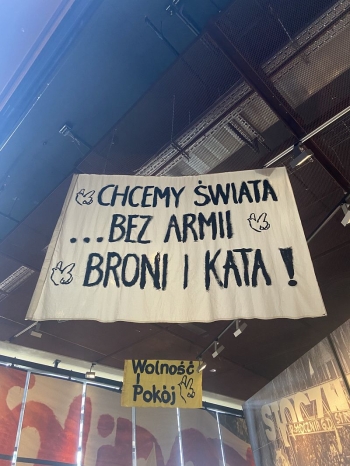 CHCEMY ŚWIATA
...BEZ ARMII
BRONI I KATA!
Wolność
i
Pokój
STOCZN